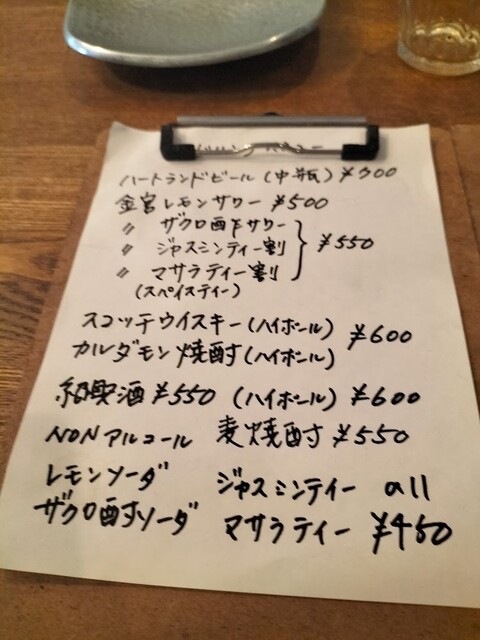 ドリンクメニュー
ハートランドビール (中瓶) ¥700
金宮レモンサワー ¥500
〃 ザクロ酢サワー
〃 ジャスミンティー割 ¥550
〃 マサラティー割
(スパイスティー)
スコッチウイスキー (ハイボール) ¥600
カルダモン焼酎 (ハイボール)
紹興酒 ¥550 (ハイボール) ¥600
NONアルコール 麦焼酎 ¥550
レモンソーダ ジャスミンティー all
ザクロ酢ソーダ マサラティー ¥450